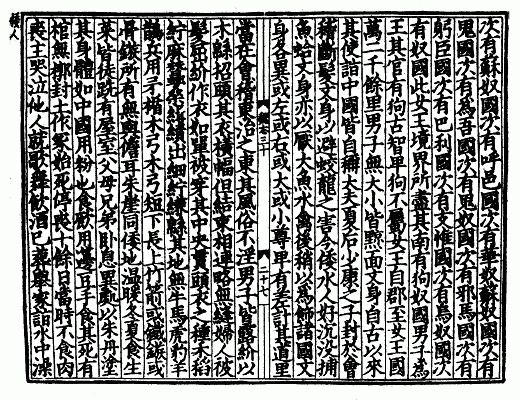 倭人
次有蘇奴國次有呼邑國次有華奴蘇奴國次有
鬼國次有為吾國次有鬼奴國次有邪馬國次有
躬臣國次有巴利國次有支惟國次有烏奴國次
有奴國此女王境界所盡其南有狗奴國男子為
王其官有狗古智卑狗不屬女王自郡至女王國
萬二千餘里男子無大小皆黥面文身自古以來
其使詣中國皆自稱大夫夏后少康之子封於會
稽斷髮文身以避蛟龍之害今倭水人好沈没捕
魚蛤文身亦以厭大魚水禽後稍以為飾諸國文
身各異或左或右或大或小尊卑有差計其道里
魏志三十
二十七
當在會稽東治之東其風俗不淫男子皆露紒以
木緜招頭其衣橫幅但結束相連略無縫婦人被
髮屈紒作衣如單被穿其中央貫頭衣之種禾稻
紵麻蠶桑緝績出細紵縑緜其地無牛馬虎豹羊
鵲兵用矛楯木弓木弓短下長上竹箭或鐵鏃或
骨鏃所有無與儋耳朱崖同倭地溫暖冬夏食生
菜皆徒跣有屋室父母兄弟臥息異處以朱丹塗
其身體如中國用粉也食飲用籩豆手食其死有
棺無槨封土作冢始死停喪十餘日當時不食肉
喪主哭泣他人就歌舞飲酒已葬舉家詣水中澡